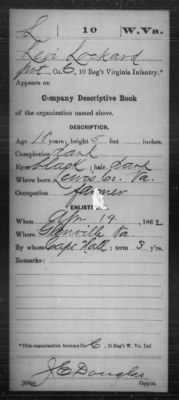 L | 10 | W. Va.
Levi Lockard
Pvt., Co. C, 10 Reg't Virginia Infantry.*
Appears on
Company Descriptive Book
of the organization named above.
DESCRIPTION.
Age 18 years; height 5 feet inches.
Complexion Dark
Eyes Black; hair Dark
Where born Lewis Co. Va.
Occupation Farmer
ENLISTED.
When Apr 19, 1862
Where Glenville Va.
By whom Capt Hall; term 3 y'rs.
Remarks:
*This organization became Co. C, 10 Reg't W. Va. Inf.
J E Douglas
Copyist.